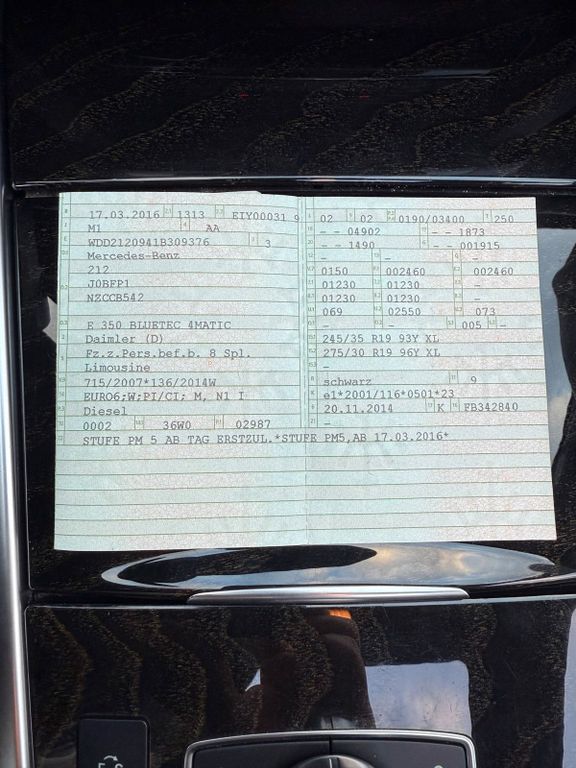 17.03.2016 1313 EIY00031 9
M1 AA
WDD2120941B309376 3
Mercedes-Benz
212
J0BFP1
NZCCB542
E 350 BLUETEC 4MATIC
Daimler (D)
Fz.z.Pers.bef.b. 8 Spl.
Limousine
715/2007*136/2014W
EURO6;W;PI/CI; M, N1 I
Diesel
0002 36W0 02987
02 02 0190/03400 250
- - 04902 - - 1873
- - 1490 - -001915
- - -
0150 002460 002460
01230 01230 -
01230 01230 -
069 02550 073
- - 005 -
245/35 R19 93Y XL
275/30 R19 96Y XL
-
schwarz 9
e1*2001/116*0501*23
20.11.2014 K FB342840
-
STUFE PM 5 AB TAG ERSTZUL.*STUFE PM5,AB 17.03.2016*